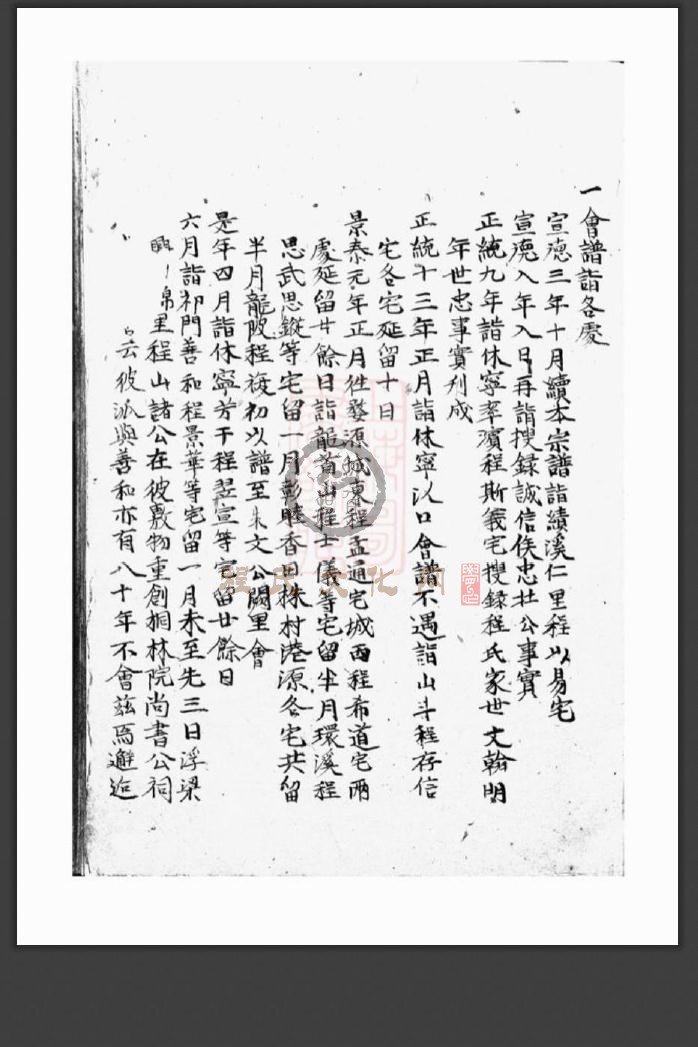 一會譜詣各處
宣德三年十月續本宗譜詣績溪仁里程以易宅
宣德八年八日再詣搜録誠信俟忠壯公事實
正統九年詣休寧率濱程斯義宅搜録程氏家世文翰明
年世忠事實刋成
正統十三年正月詣休寧汊口會譜不遇詣山斗程存信
宅各宅延留十日
景泰元年正月徃婺源城東程孟通宅城西程希道宅兩
處延留廿餘日詣龍首山程士儀等宅留半月環溪程
思武思鏦等宅留一月彰睦香田株村港源各宅共留
半月龍陂程復初以譜至朱文公闕里會
是年四月詣休寧芳干程翌宣等宅留廿餘日
六月詣祁門善和程景華等宅留一月未至先三日浮梁
興帛里程山諸公在彼敷物重創桐林院尚書公祠
云彼派與善和亦有八十年不會兹焉邂逅
程氏文化網